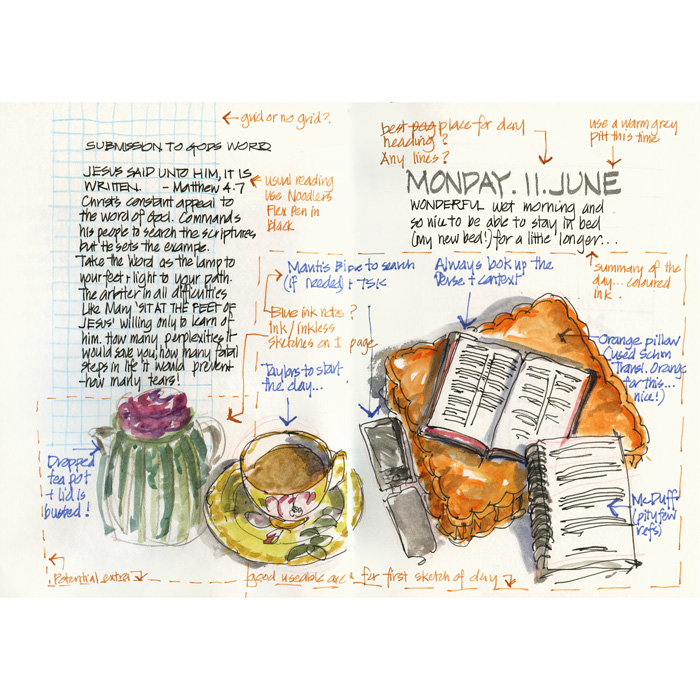 ← grid or no grid?.
SUBMISSION TO GODS WORD
JESUS SAID UNTO HIM, IT IS
WRITTEN. - Matthew 4.7
Christs constant appeal to
the word of God. Commands
his people to search the scriptures
but He sets the example.
Take the Word as the lamp to
your feet + light to your path.
The arbiter in all difficulties
Like Mary 'SIT AT THE FEET OF
JESUS' willing only to learn of
him. How many perplexities it
would save you, how many fatal
steps in life it would prevent
-how many tears!
usual reading
use Noodlers
Flex Pen in
Black
best pag place for day
heading?
Any lines?
use a warm grey
pitt this time
MONDAY. 11. JUNE
WONDERFUL wet morning and
so nice to be able to stay in bed
(my new bed!) for a little longer...
summary of the
day... coloured
ink.
Mantis Bible to search
(if needed) + TSK
Always look up the
Verse + context
Blue ink notes?
Ink/inkless
sketches on 1 page
Taylors to start
the day...
Orange pillow
(used Schm
Transl. Orange
for this...
nice!)
Dropped
tea pot
+ lid is
busted!
McDuff
(pity few
refs)
Potential extra
good useable area for first sketch of day